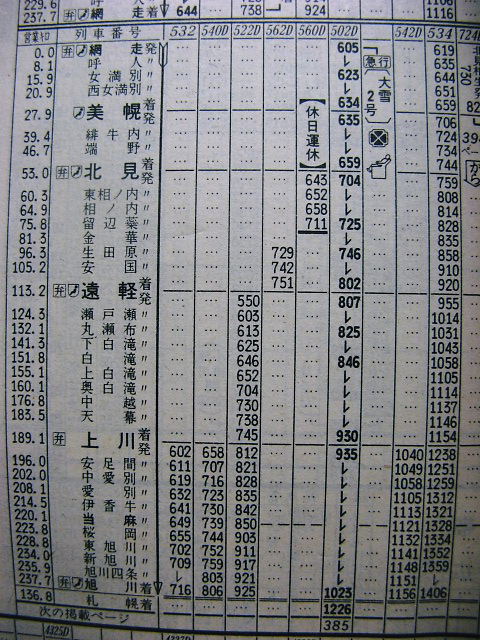 229.6 呼 人 〃
237.7 弁 網 走 着 644 … … 738 … 924 … … 1116
営業キロ 列車番号 532 540D 522D 562D 560D 502D 542D 534 624D
0.0 弁 網 走 発 … … … … … 605 急行 … 619
8.1 呼 人 〃 … … … … … レ 大雪2号 … 635
15.9 女満別 〃 … … … … … 623 … 644
20.9 西女満別 〃 … … … … … レ … 651
27.9 美幌 着 … … … … 【休日運休】 634 … 659
発 … … … … 635 … 706
39.4 緋牛内 〃 … … … … レ … 724
46.7 端 野 〃 … … … … レ … 734
53.0 弁 北見 着 … … … … 659 … 744
発 … … … … 643 704 … 759
60.3 東相ノ内 〃 … … … … 652 レ … 808
64.9 相ノ内 〃 … … … … 658 レ … 814
75.8 留辺蘂 〃 … … … … 711 725 … 828
81.3 金 華 〃 … … … … … レ … 835
96.3 生田原 〃 … … … 729 … 746 … 858
105.2 安 国 〃 … … … 742 … レ … 910
113.2 弁 遠軽 着 … … … 751 … 802 … 920
発 … … 550 … … 807 … 955
124.3 瀬戸瀬 〃 … … 603 … … レ … 1014
132.1 丸瀬布 〃 … … 613 … … 825 … 1031
141.3 下白滝 〃 … … 625 … … レ … 1043
151.8 白 滝 〃 … … 646 … … 846 … 1058
155.1 上白滝 〃 … … 652 … … レ … 1105
160.1 奥白滝 〃 … … 704 … … レ … 1114
176.8 中 越 〃 … … 730 … … レ … 1137
183.5 天 幕 〃 … … 738 … … レ … 1146
189.1 弁 上川 着 … … 745 … … 930 … 1154
発 602 658 812 … … 935 1040 1238
196.0 安足間 〃 611 707 821 … … レ 1049 1251
202.0 中愛別 〃 619 716 828 … … レ 1058 1259
208.1 愛 別 〃 632 723 835 … … レ 1105 1312
214.5 伊香牛 〃 641 730 842 … … レ 1113 1321
220.1 当 麻 〃 649 739 850 … … レ 1121 1328
223.8 桜 岡 〃 655 744 903 … … レ 1132 1334
228.8 東旭川 〃 702 752 911 … … レ 1141 1352
234.0 新旭川 〃 709 759 917 … … レ 1148 1359
235.9 旭川四条 〃 レ 803 921 … … レ 1151 レ
237.7 弁 旭 川 着 716 806 925 … … 1023 1156 1406
136.8 札 幌 着 … … … … … 1226 … …
次の掲載ページ 385
4325D